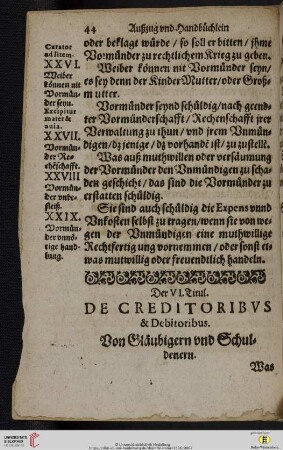 44 Außzug vnd Handbüchlein
Curator
ad litem.
XXVI.
Weiber
können nit
Vormün-
der seyn.
Excipitur
mater &
auia.
XXVII.
Vormün-
der Re-
chẽschafft.
XXVIII
Vormün-
der vnde-
fleiß.
XXIX.
Vormün-
der vnnö-
tige hand-
lung.
oder beklagt würde / so soll er bitten / jhme
Vormünder zu rechtlichem Krieg zu geben.
Weiber können nit Vormünder seyn /
es sey denn der Kinder Mutter / oder Groß-
mutter.
Vormünder seynd schüldig / nach geend-
ter Vormünderschafft / Rechenschafft jrer
Verwaltung zu thun / vnd jrem Vnmün-
digen / dz jenige / dz vorhandẽ ist / zu zustellẽ.
Was auß muthwillen oder versäumung
der Vormünder den Vnmündigen zu scha-
den geschicht / das sind die Vormünder zu
erstatten schüldig.
Sie sind auch schüldig die Expens vnnd
Vnkosten selbst zu tragen / wenn sie von we-
gen der Vnmündigen eine muthwillige
Rechtfertigung vornemmen / oder sonst et-
was mutwillig oder freuentlich handeln.
Der VI. Titul.
DE CREDITORIBVS
& Debitoribus.
Von Gläubigern vnd Schul-
denern.
Was
UNIVERSITÄTS-
BIBLIOTHEK
HEIDELBERG